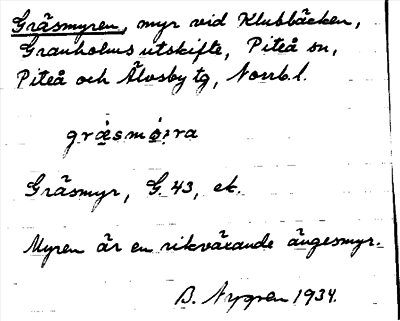 Gräsmyren, myr vid Klubbäcken,
Granholms utskifte, Piteå sn,
Piteå och Älvsby tg, Norrb. l.
Gräsmyr, G. 43, ek.
Myren är en rikväxande ängesmyr.
B. Nygren 1934.